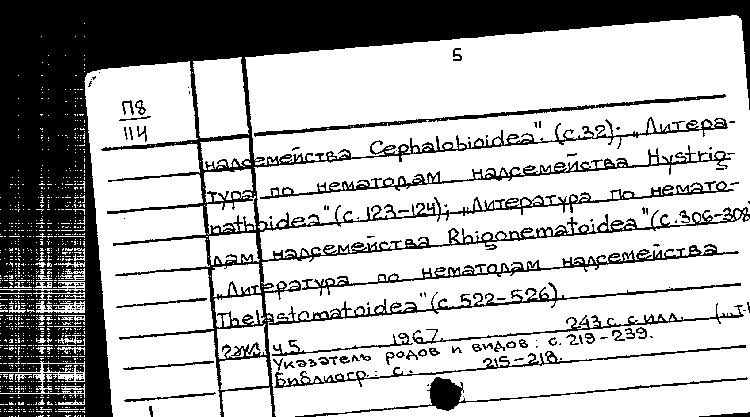 5
П8
114
надсемейства Cephalobioidea". (с.32); „Литера-
тура по нематодам надсемейства Hystrig-
nathoidea" (с. 123-124); „Литература по немато-
дам надсемейства Rhigonematoidea" (с. 306-308)
„Литература по нематодам надсемейства
Thelastomatoidea" (с. 522-526).
ч.5. 1967. 243 с. с илл.
Указатель родов и видов: с. 219-239.
Библиогр.: с. 215-218.